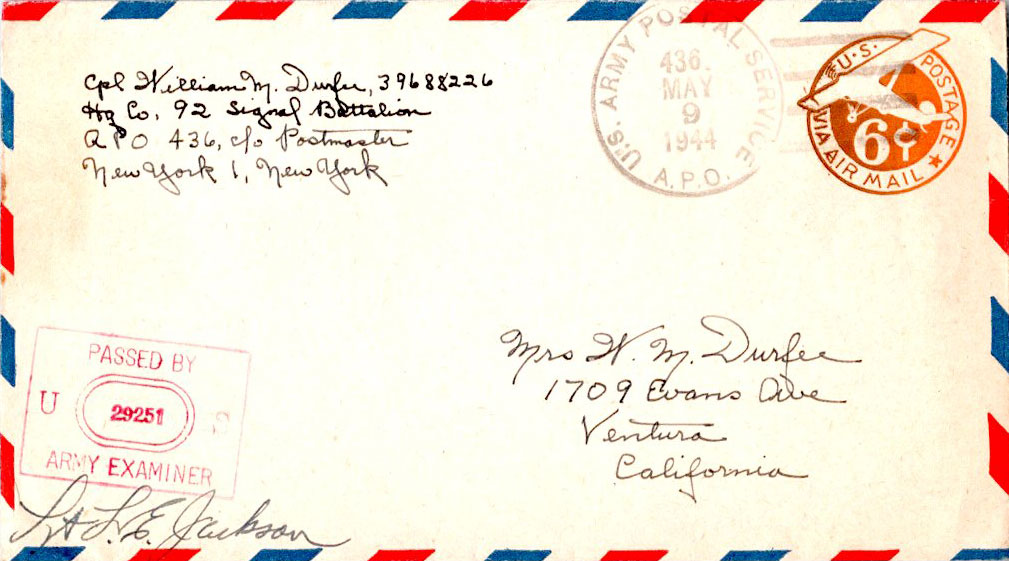 Cpl William M. Durfee, 39688226
Hq Co, 92 Signal Battalion
APO 436, c/o Postmaster
New York 1, New York
U.S. ARMY POSTAL SERVICE
436.
MAY
9
1944
A.P.O.
U.S. POSTAGE
6¢
VIA AIR MAIL
Mrs W. M. Durfee
1709 Evans Ave
Ventura
California
PASSED BY
U 29251 S
ARMY EXAMINER
Lt L. E. Jackson